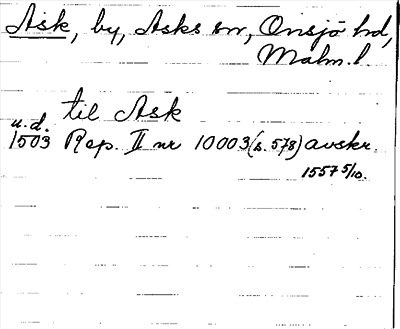 Ask, by, Asks sn, Onsjö hd,
Malm. l.
til Ask
u.d.
1503 Rep. II nr 10003 (s. 578) avskr.
1557 5/10.